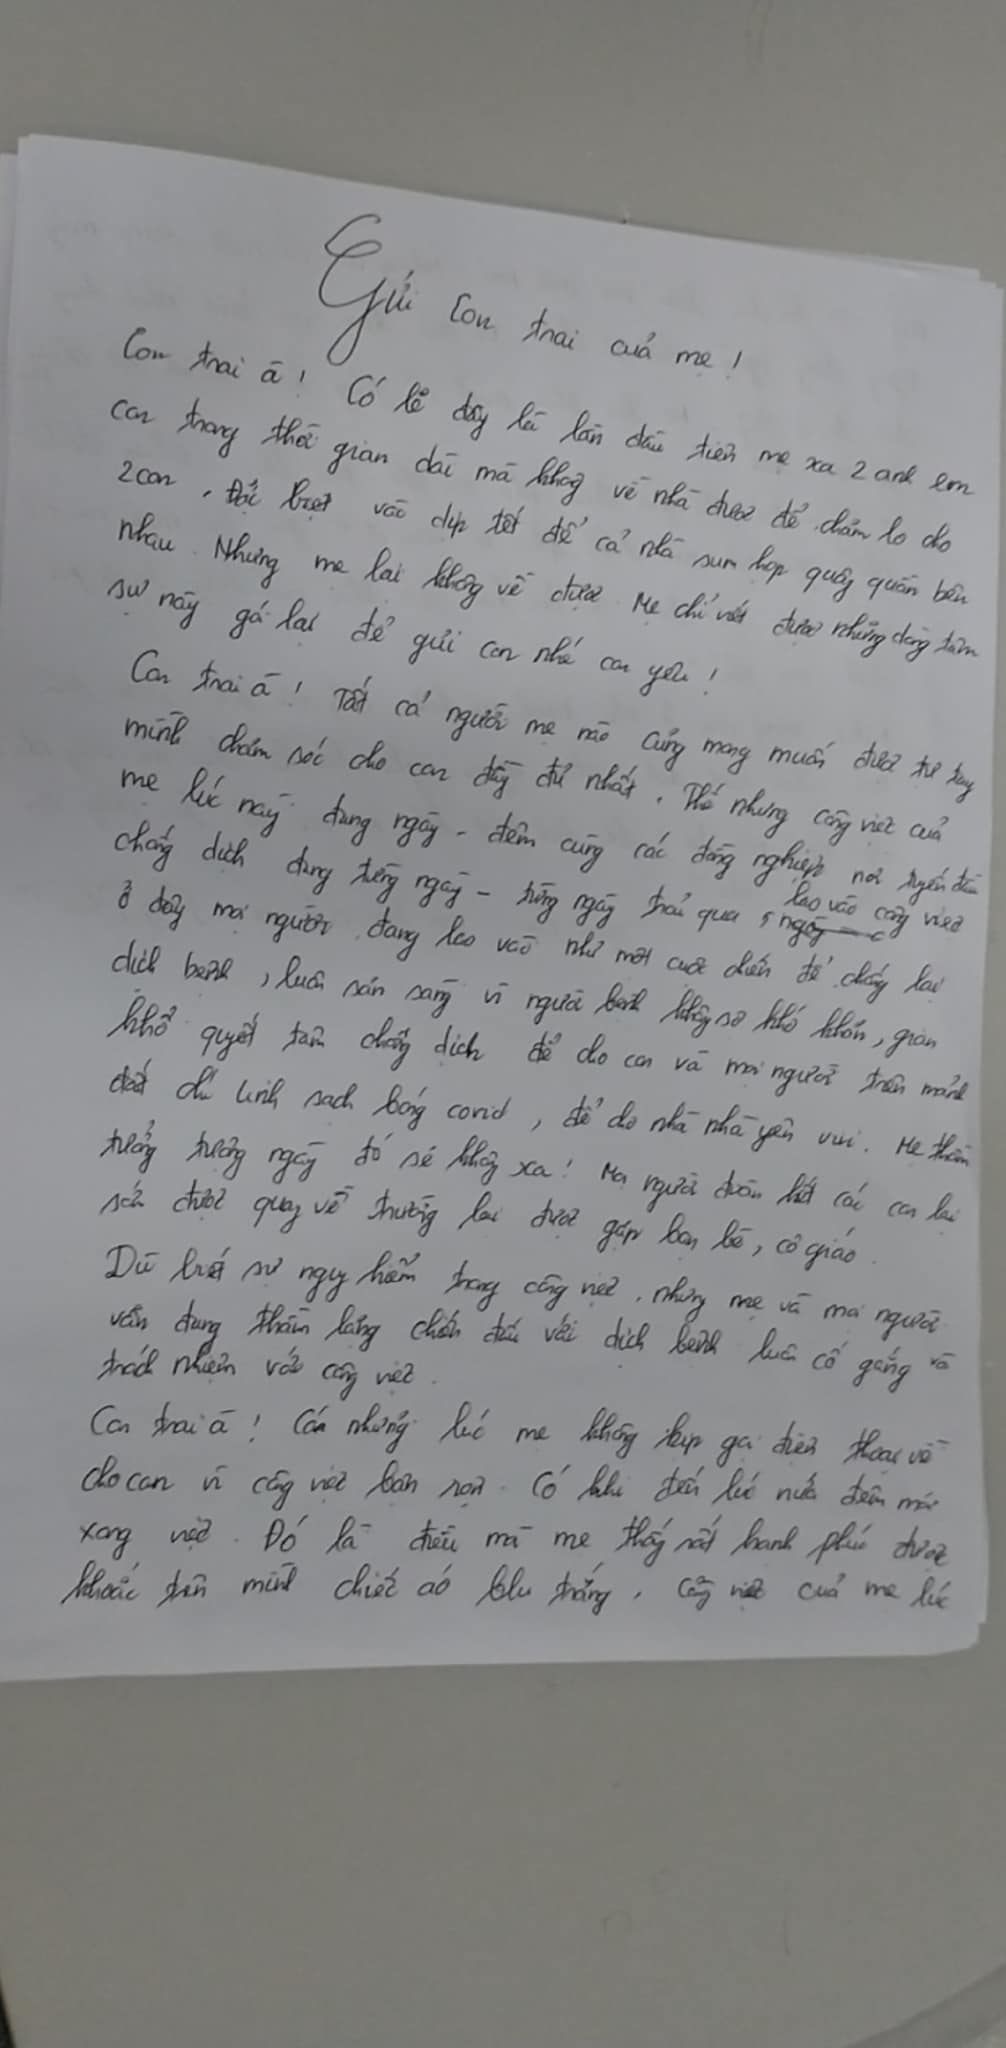 Gửi con trai của mẹ!
Con trai à! Có lẽ đây là lần đầu tiên mẹ xa 2 anh em
con trong thời gian dài mà không về nhà được để chăm lo cho
2 con. Đặc biệt vào dịp tết để cả nhà sum họp quây quần bên
nhau. Nhưng mẹ lại không về được. Mẹ chỉ viết được những dòng tâm
sự này gói lại để gửi con nhé con yêu!
Con trai à! Tất cả người mẹ nào cũng mong muốn được tự tay
mình chăm sóc cho con đầy đủ nhất. Thế nhưng công việc của
mẹ lúc này đang ngày - đêm cùng các đồng nghiệp nơi tuyến đầu
chống dịch đang từng ngày - từng ngày trải qua, lao vào công việc
ở đây mọi người đang lao vào như một cuộc chiến để chống lại
dịch bệnh, luôn sẵn sàng vì người bệnh không sợ khó khăn, gian
khổ quyết tâm chống dịch để cho con và mọi người trên mảnh
đất chí linh sạch bóng covid, để cho nhà nhà yên vui. Mẹ thầm
tưởng tượng ngày đó sẽ không xa! Mọi người đoàn kết các con lại
sớm được quay về trường lại được gặp bạn bè, cô giáo.
Dù biết sự nguy hiểm trong công việc, nhưng mẹ và mọi người
vẫn đang thầm lặng chiến đấu với dịch bệnh luôn cố gắng và
trách nhiệm với công việc.
Con trai à! Có những lúc mẹ không kịp gọi điện thoại về
cho con vì công việc bận rộn. Có khi đến lúc nửa đêm mới
xong việc. Đó là điều mà mẹ thấy rất hạnh phúc được
khoác trên mình chiếc áo blu trắng, công việc của mẹ lúc